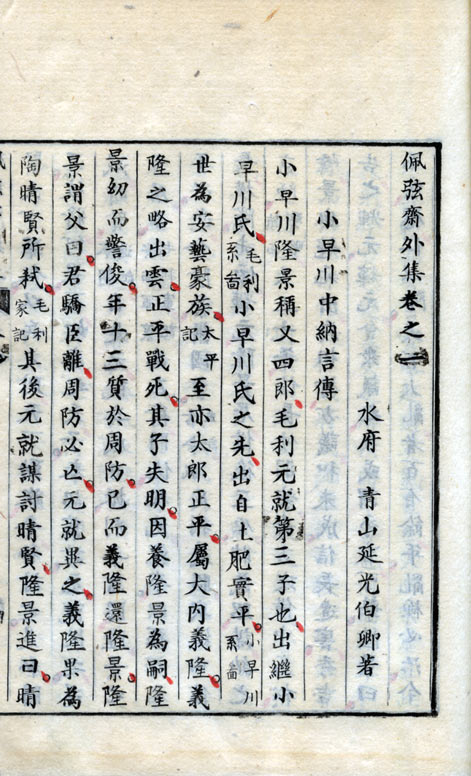 佩弦齋外集卷之一
水府 青山延光伯卿著
小早川中納言傳
小早川隆景稱又四郎毛利元就第三子也出繼小
早川氏毛利系啚小早川氏之先出自土肥實平小早川系啚
世為安藝豪族太平記至亦太郎正平屬大内義隆義
隆之略出雲正平戰死其子失明因養隆景為嗣隆
景幼而警俊年十三質於周防已而義隆還隆景隆
景謂父曰君驕臣離周防必亡元就異之義隆果為
陶晴賢所弑毛利家記其後元就謀討晴賢隆景進曰晴